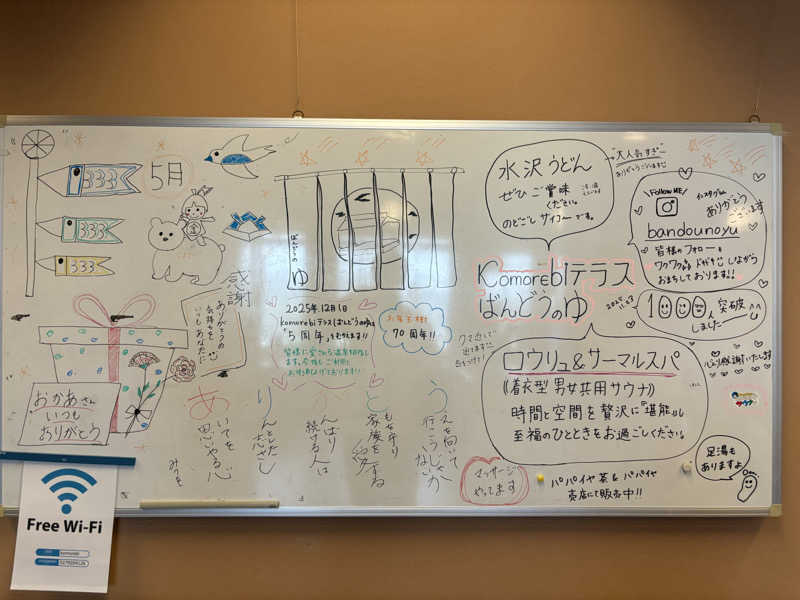 5月
333
333
333
感謝
ありがとうの
気持ちを
いつもあなたに
おかあさん
いつも
ありがとう
ばんどうの
ゆ
2025年12月1日
komorebiテラスばんどうのゆは
"5周年"をむかえます!!
皆様に愛される温泉施設
お菓子棚
70周年!!
うえを向いて
行こうじゃないか
もも
家族を
がんばり
続ける人は
りんとした
あいてを
思いやる心
みつを
水沢うどん
ぜひご賞味
ください。
のどごしサイコーです。
大人気すぎ
ありがとうございます
Follow ME!
インスタグラム
ありがとう
ございます
bandounoyu
皆様のフォローを
ワクワクドキドキしながら
お待ちしております!!
KOMOREBIテラス
ばんどうのゆ
1000人
突破
しました
心より感謝いたします
ロウリュ&サーマルスパ
《着衣型 男女共用サウナ》
時間と空間を贅沢に"堪能"し
至福のひとときをお過ごしください。
足湯も
ありますよ
マッサージ
やってます
パパイヤ茶&パパイヤ
売店にて販売中!!
Free Wi-Fi